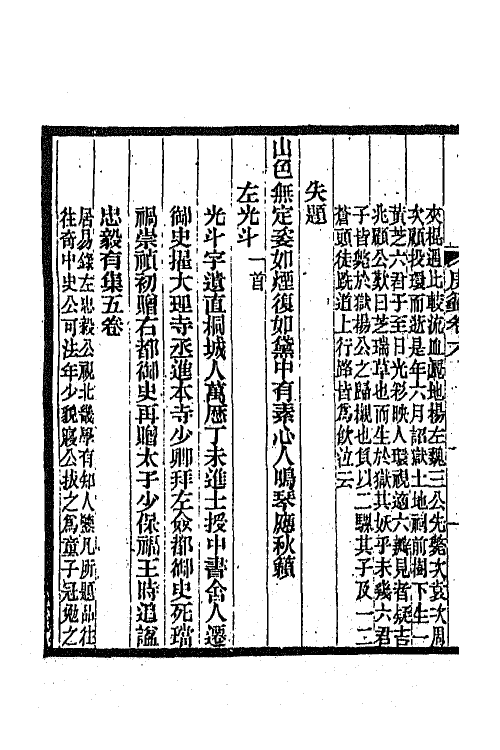 夾棍過比較流血屬地楊左魏三公先斃次袁次周
次顧投環而逝是年六月詔獄土地祠前樹下生一
黃芝六君于至日光彩映人環視適六瓣見者疑吉
兆顧公歎曰芝瑞草也而生於獄其妖乎未幾六君
子皆斃於獄楊公之歸櫬也負以二騾其子及一二
蒼頭徒跣道上行路皆為飲泣云
失題
山色無定姿如煙復如黛中有素心人鳴琴應秋籟
左光斗一首
光斗字遺直桐城人萬曆丁未進士授中書舍人遷
御史擢大理寺丞進本寺少卿拜左僉都御史死璫
禍崇禎初贈右都御史再贈太子少保福王時追諡
忠毅有集五卷
居易錄左忠毅公視北畿學有知人鑒凡所題品往
往奇中史公可法年少貌寢公拔之為童子冠勉之